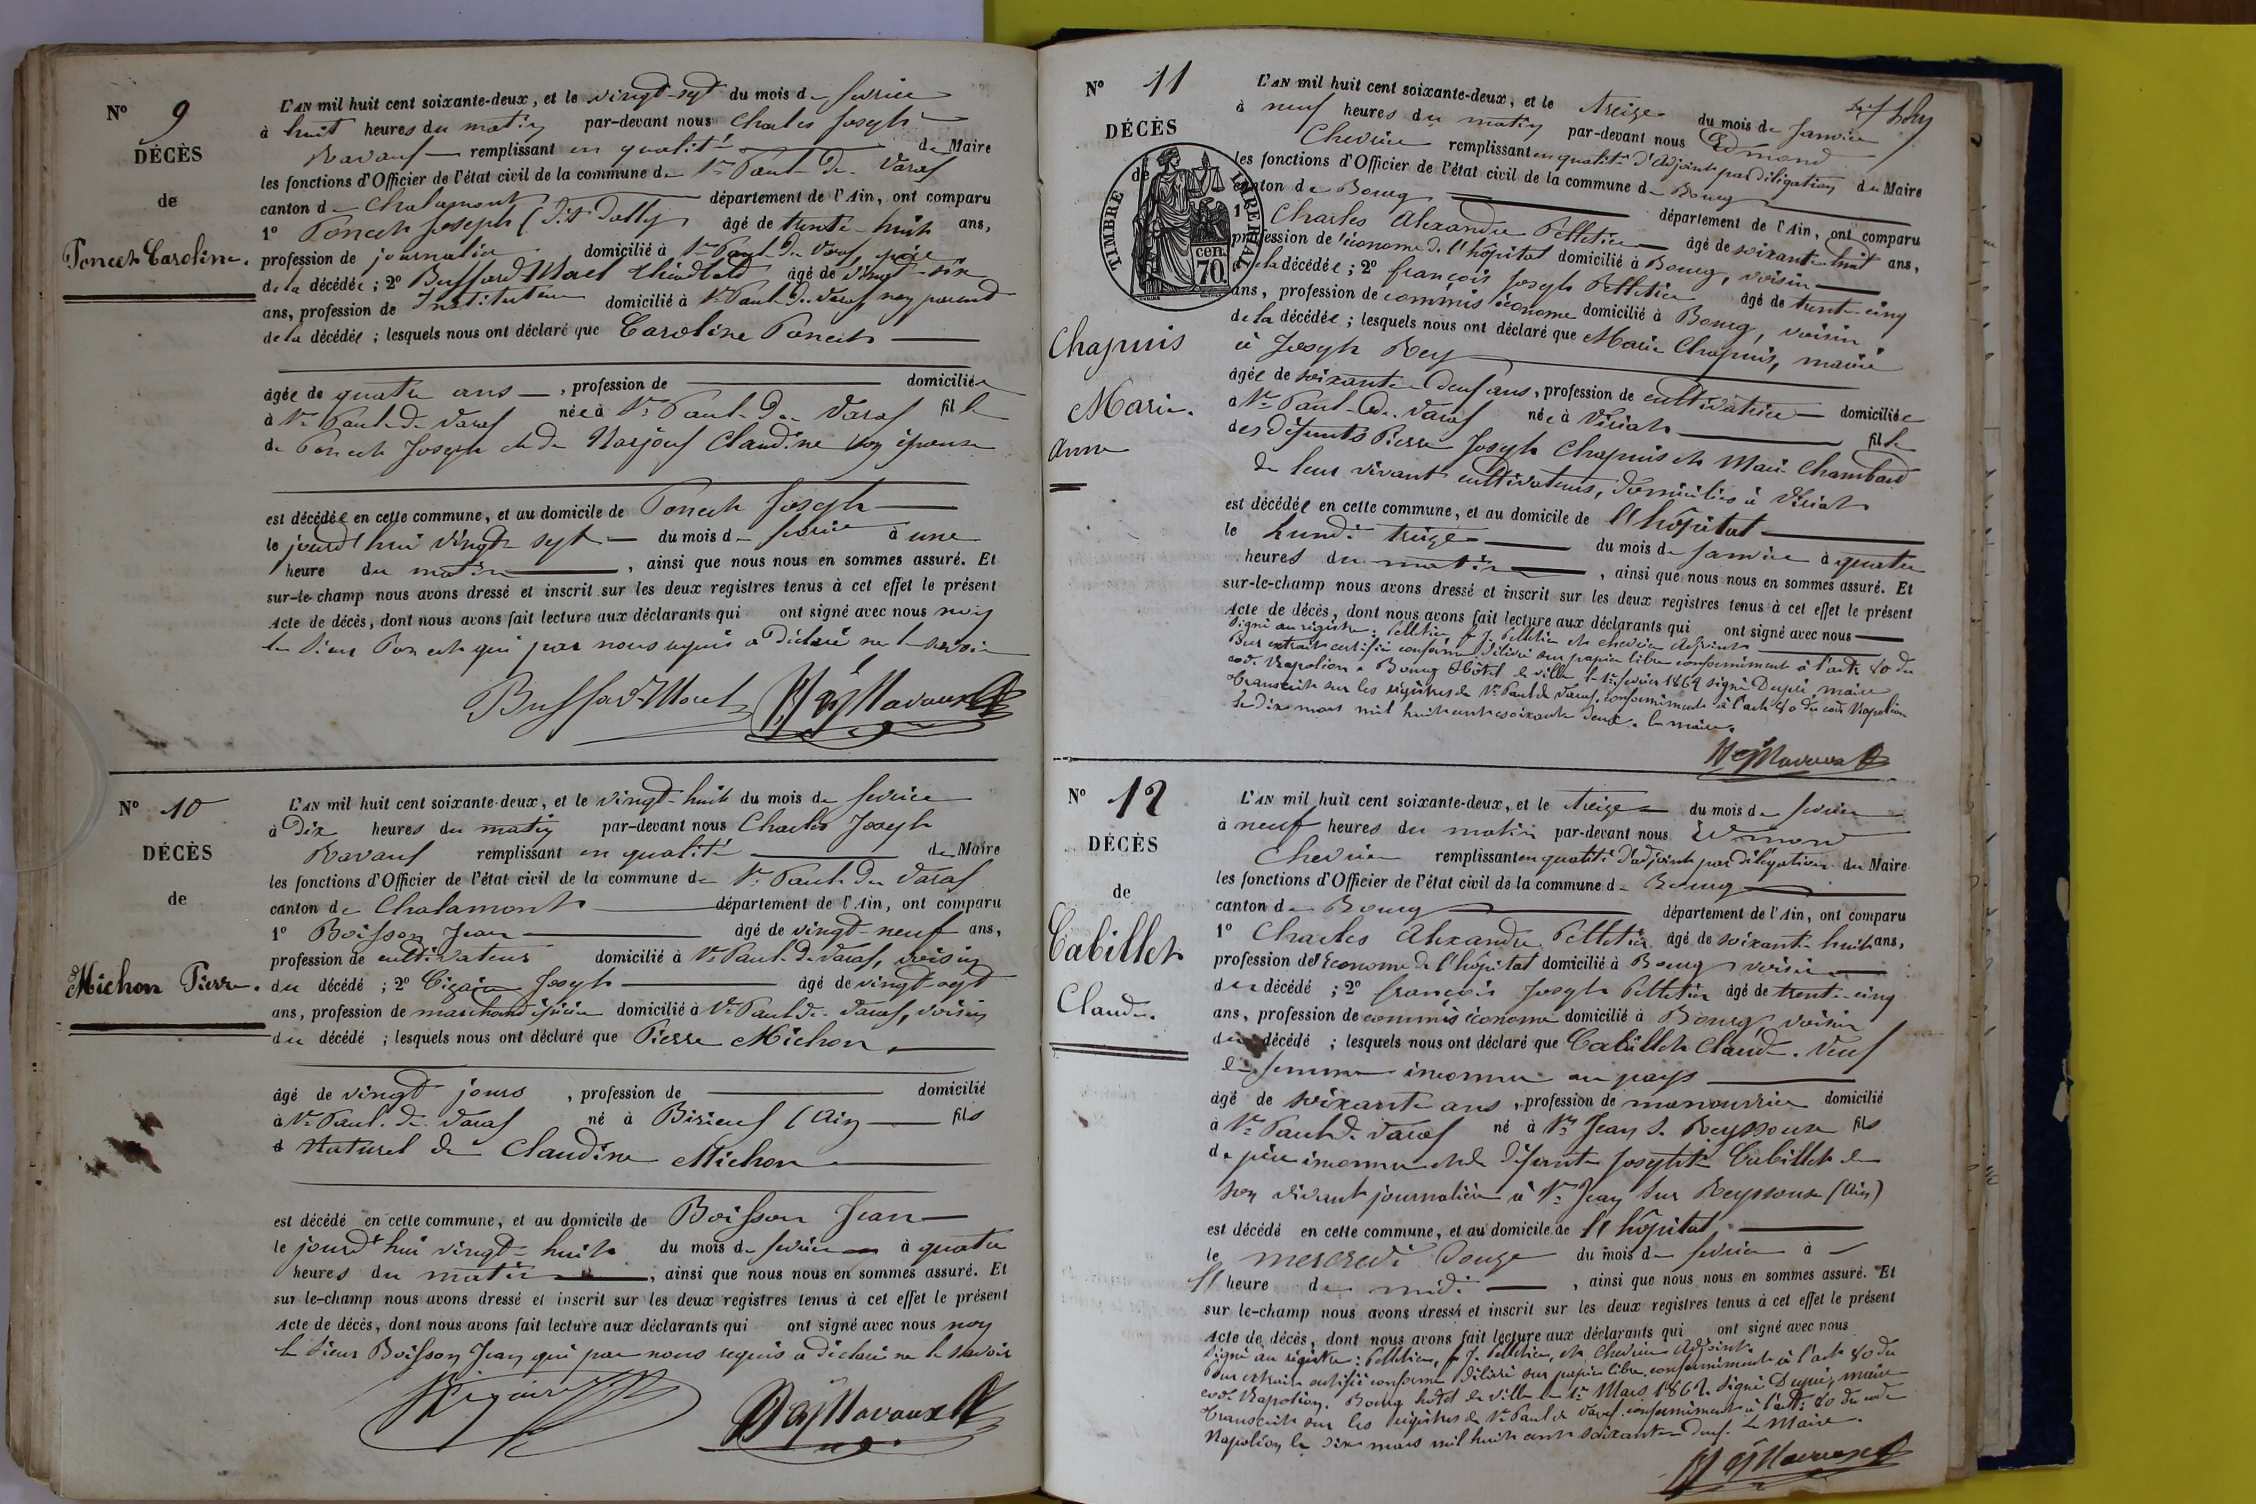 N° 9
DÉCÈS
de
Poncet Caroline.
L'AN mil huit cent soixante-deux, et le vingt-sept du mois de fevrier
à huit heures du matin par-devant nous Charles Joseph
Ravaux remplissant en qualité de Maire
les fonctions d'Officier de l'état civil de la commune de St Paul de Varax
canton de Chalamont département de l'Ain, ont comparu
1° Poncet Joseph (dit Dolly) âgé de trente-huit ans,
profession de journalier domicilié à St Paul de Varax père
de la décédée ; 2° Buffard-Morel âgé de vingt-six
ans, profession de Instituteur domicilié à St Paul de Varax non parent
de la décédée ; lesquels nous ont déclaré que Caroline Poncet
âgée de quatre ans , profession de domiciliée
à St Paul de Varax née à St Paul de Varax fille
de Poncet Joseph et de Marjoux Claudine son épouse
est décédée en cette commune, et au domicile de Poncet Joseph
le jourd'hui vingt-sept du mois de fevrier à une
heure du matin , ainsi que nous nous en sommes assuré. Et
sur-le-champ nous avons dressé et inscrit sur les deux registres tenus à cet effet le présent
Acte de décès, dont nous avons fait lecture aux déclarants qui ont signé avec nous non
le sieur Poncet qui par nous requis a déclaré ne le savoir
Buffard-Morel Ravaux
N° 10
DÉCÈS
de
Michon Pierre.
L'AN mil huit cent soixante-deux, et le vingt-huit du mois de fevrier
à Dix heures du matin par-devant nous Charles Joseph
Ravaux remplissant en qualité de Maire
les fonctions d'Officier de l'état civil de la commune de St Paul de Varax
canton de Chalamont département de l'Ain, ont comparu
1° Boisson Jean âgé de vingt-neuf ans,
profession de cultivateur domicilié à St Paul de Varax, voisin
du décédé ; 2° Joseph âgé de vingt-sept
ans, profession de marchand épicier domicilié à St Paul de Varax, voisin
du décédé ; lesquels nous ont déclaré que Pierre Michon
âgé de vingt jours , profession de domicilié
à St Paul de Varax né à Birieux (Ain fils
Naturel de Claudine Michon
est décédé en cette commune, et au domicile de Boisson Jean
le jourd'hui vingt-huit du mois de fevrier à quatre
heures du matin , ainsi que nous nous en sommes assuré. Et
sur le-champ nous avons dressé et inscrit sur les deux registres tenus à cet effet le présent
Acte de décès, dont nous avons fait lecture aux déclarants qui ont signé avec nous non
le sieur Boisson Jean qui par nous requis a déclaré ne le savoir
Ravaux
N° 11
DÉCÈS
de
TIMBRE IMPERIAL
70 cen.
Chapuis
Marie.
Anne
L'AN mil huit cent soixante-deux, et le treize du mois de janvier
à neuf heures du matin par-devant nous Edmond
Chevrier remplissant en qualité d'adjoint par délégation du Maire
les fonctions d'Officier de l'état civil de la commune de Bourg
canton de Bourg département de l'Ain, ont comparu
1° Charles Alexandre Pelletier âgé de soixante-huit ans,
profession de l'économe de l'hôpital domicilié à Bourg, voisin
de la décédée ; 2° françois Joseph Pelletier âgé de trente-cinq
ans, profession de commis économe domicilié à Bourg, voisin
de la décédée ; lesquels nous ont déclaré que Marie Chapuis, mariée
à Joseph Rey
âgée de soixante-deux ans, profession de cultivatrice domiciliée
à St Paul de Varax née à Viriat fille
des défunts Pierre Joseph Chapuis et Marie Chambard
de leur vivant cultivateurs, domiciliés à Viriat
est décédée en cette commune, et au domicile de l'hôpital
le Lundi treize du mois de janvier à quatre
heures du matin , ainsi que nous nous en sommes assuré. Et
sur-le-champ nous avons dressé et inscrit sur les deux registres tenus à cet effet le présent
Acte de décès, dont nous avons fait lecture aux déclarants qui ont signé avec nous
Signé au registre : Pelletier, f. J. Pelletier et Chevrier adjoint
Pour extrait certifié conforme délivré sur papier libre conformément à l'art. 80 du
code Napoléon. Bourg Hôtel de ville le 1er fevrier 1862 signé Dupré, maire
Transcrit sur les registres de St Paul de Varax, conformément à l'art. 80 du code Napoléon
Le dix mars mil huit cent soixante deux. le maire.
Ravaux
N° 12
DÉCÈS
de
Cabillet
Claude.
L'AN mil huit cent soixante-deux, et le treize du mois de fevrier
à neuf heures du matin par-devant nous Edmond
Chevrier remplissant en qualité d'adjoint par délégation du Maire
les fonctions d'Officier de l'état civil de la commune de Bourg
canton de Bourg département de l'Ain, ont comparu
1° Charles Alexandre Pelletier âgé de soixante-huit ans,
profession de l'économe de l'hôpital domicilié à Bourg voisin
du décédé ; 2° françois Joseph Pelletier âgé de trente-cinq
ans, profession de commis économe domicilié à Bourg, voisin
du décédé ; lesquels nous ont déclaré que Cabillet Claude. Veuf
de femme inconnue au pays
âgé de soixante ans , profession de manouvrier domicilié
à St Paul de Varax né à St Jean s. Reyssouze fils
de père inconnu et de défunte Josephte Cabillet de
son vivant journalière à St Jean sur Reyssouze (Ain)
est décédé en cette commune, et au domicile de l'hôpital
le mercredi douze du mois de fevrier à
l'heure de midi , ainsi que nous nous en sommes assuré. Et
sur le-champ nous avons dressé et inscrit sur les deux registres tenus à cet effet le présent
Acte de décès, dont nous avons fait lecture aux déclarants qui ont signé avec nous
Signé au registre : Pelletier, f. J. Pelletier, et Chevrier adjoint.
Pour extrait certifié conforme délivré sur papier libre conformément à l'art. 80 du
code Napoléon. Bourg hotel de ville le 1er Mars 1862. signé Dupré, maire
Transcrit sur les registres de St Paul de Varax conformément à l'art. 80 du code
Napoléon le dix mars mil huit cent soixante-deux. Le Maire.
Ravaux